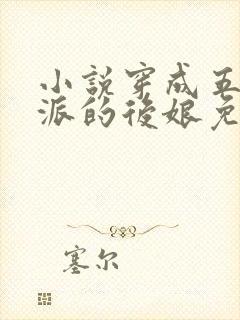 小説穿成五
派的後娘免
塞尔